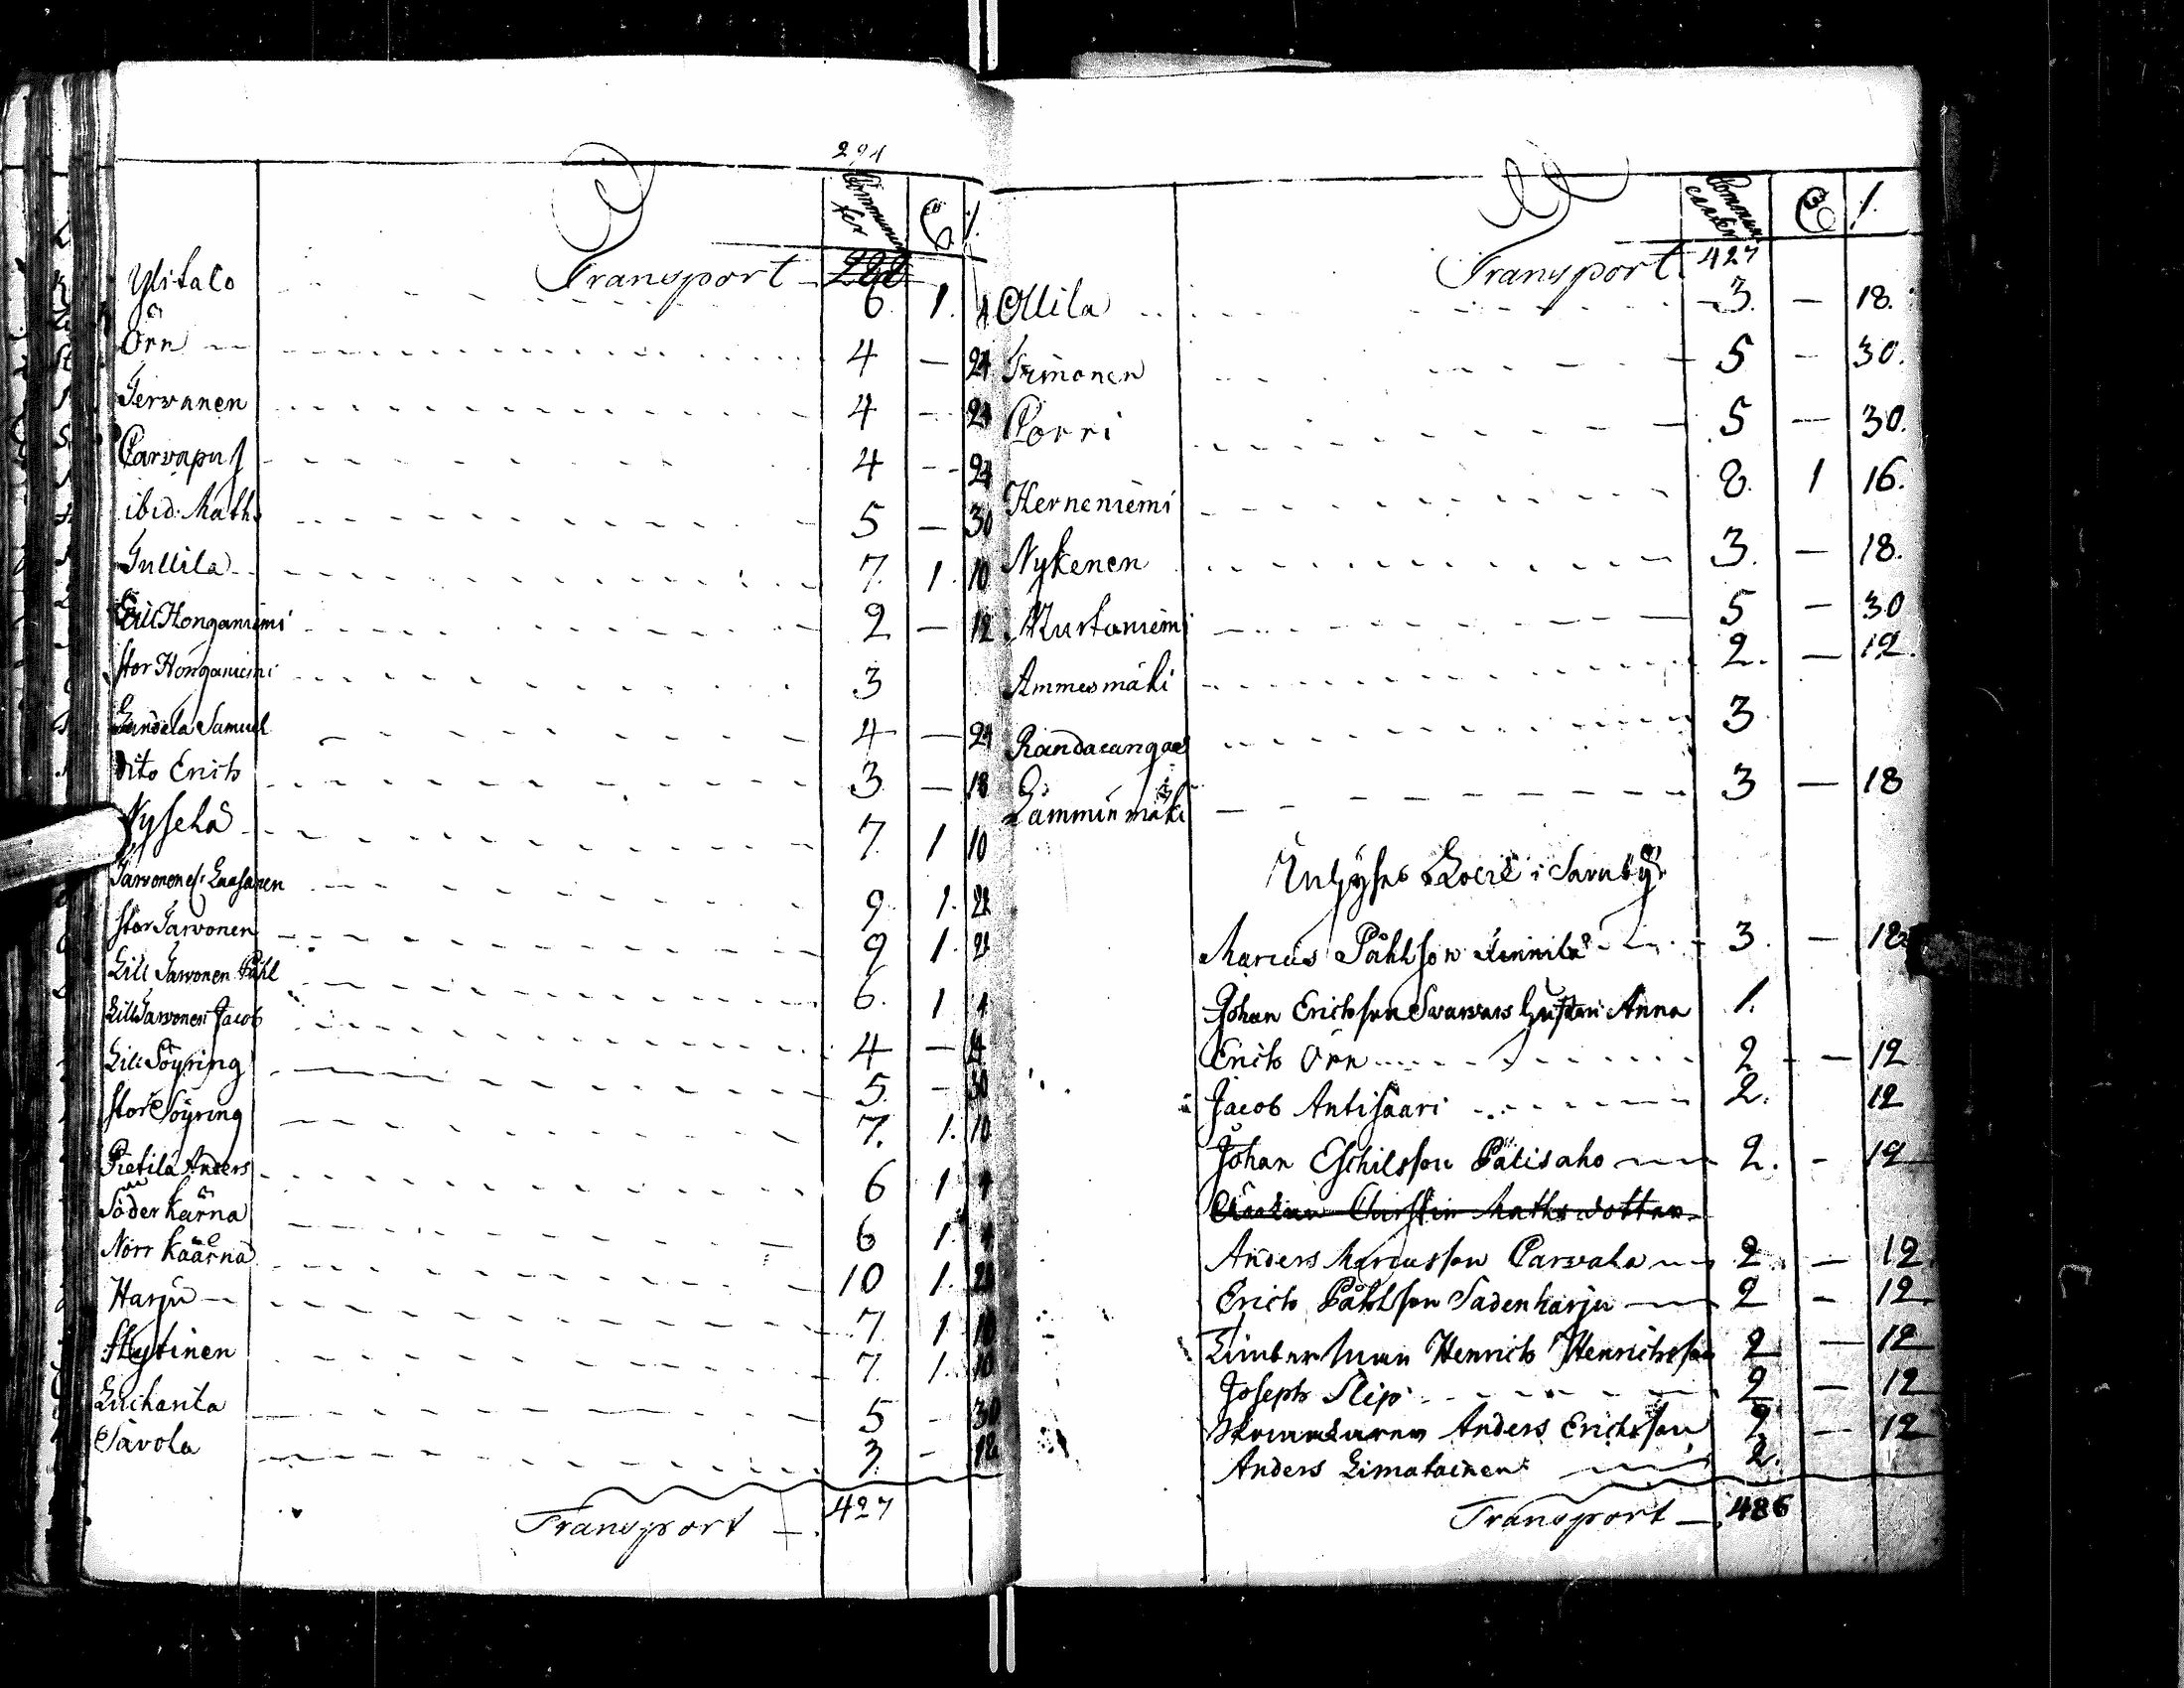 294
Communican
ter
Transport 292
Ylitalo 6. 1. 4
Örn 4 — 24
Jervanen 4 — 24
Parvapuſ 4 — 24
ibid. Maths 5 — 30
Jullila 7. 1. 10
Lill Honganiemi 2 — 12
Stor Honganiemi 3
Sandela Samuel 4 — 24
dito Erich 3 — 18
Nyselä 7. 1 10
Jarvonen 9. 1. 22
Stor Jarvonen 9 1. 22
Lill Jarvonen Påhl 6. 1 4
Lill Jarvonen Jacob 4 — 24
Lill Söyring 5. — 30
Stor Söyring 7. 1. 10
Pietilä Anders 6 1 4
Söder kärnä 6 1. 4
Norr käärnä 10 1. 28
Harju 7. 1 10
Skytinen 7. 1. 10
Luikanta 5 — 30
Savola 3. — 18
Transport 427
Communi
canter
Transport 427
Ollila 3. — 18.
Timonen 5 — 30.
Porri 5 — 30.
Herneniemi 8. 1 16.
Nykenen 3. — 18.
Kurkaniemi 5 — 30
Ammesmäki 2. — 12.
Randacangas 3
Lamminmäki 3 — 18
Inhyses i Sarvby
Marcus Påhlson 3. — 18
Johan Erichson Hustru Anna 1.
Erich Örn 2 — 12
Jacob Antisaari 2. 12
Johan Eschilsson Pätisaho 2. — 12
Christin Maths dotter
Anders Marcusson Parvala 2. — 12
Erich Påhlson Sadenharju 2 — 12
Timberman Henrich Henrichsson 2 — 12
Joseph Slip 2 — 12
Anders Erichsson 2 — 12
Anders Limatainen 2.
Transport 486